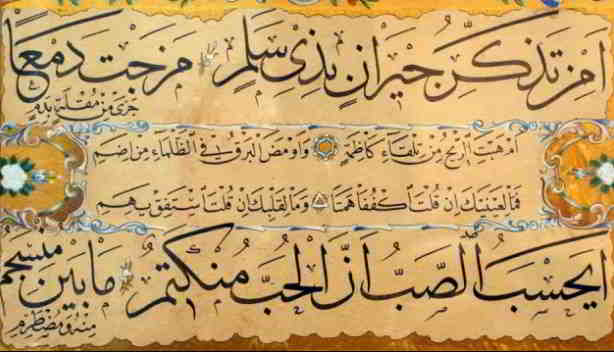 اَمِنْ تَذَكُّرِ جِيْرَانٍ بِذِيْ سَلَمٍ مَزَجْتَ دَمْعًا
جَرٰى مِنْ مُقْلَةٍ بِدَمِ
اَمْ هَبَّتِ الرِّيحُ مِنْ تِلْقَاءِ كَاظِمَةٍ وَاَوْمَضَ الْبَرْقُ فِي الظَّلْمَاءِ مِنْ اِضَمِ
فَمَا لِعَيْنَيْكَ اِنْ قُلْتَ اكْفُفَا هَمَتَا وَمَا لِقَلْبِكَ اِنْ قُلْتَ اسْتَفِقْ يَهِمِ
اَيَحْسَبُ الصَّبُّ اَنَّ الْحُبَّ مُنْكَتِمٌ مَا بَيْنَ مُنْسَجِمٍ
مِنْهُ وَمُضْطَرِمِ